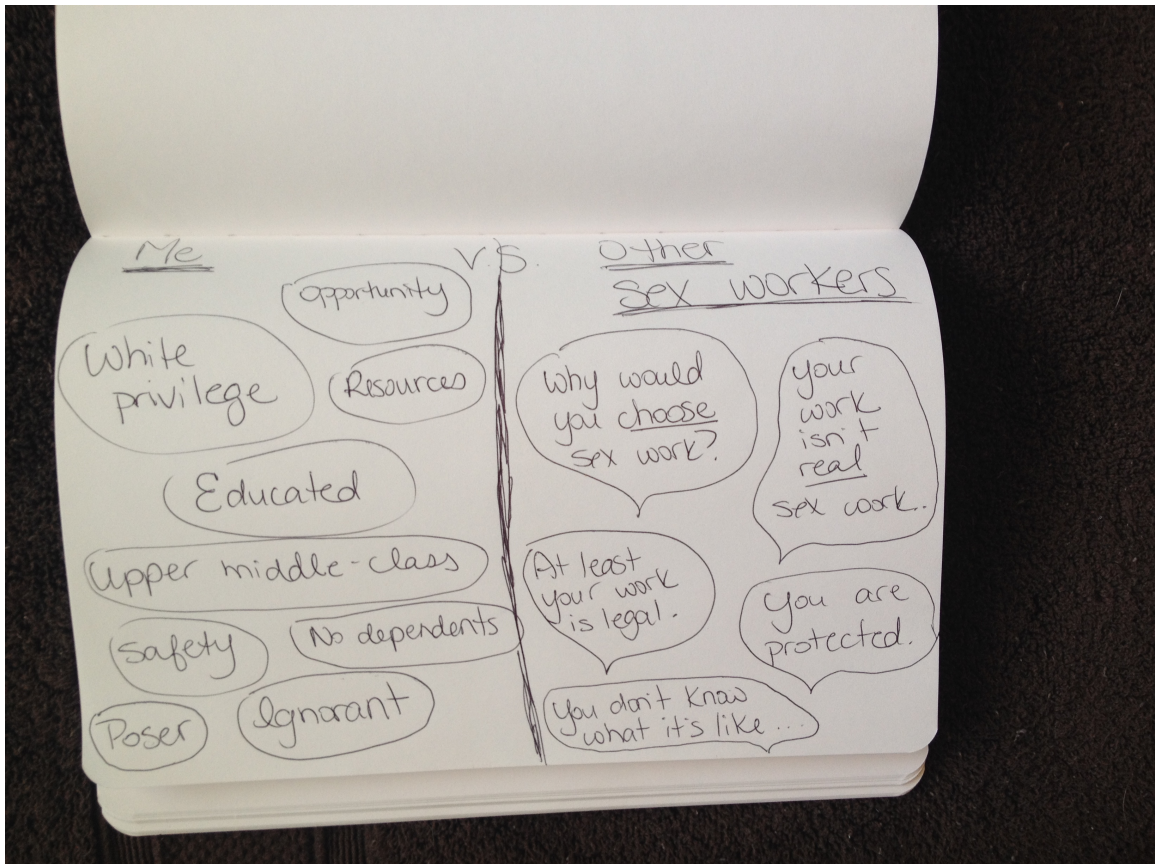 Me
v.s.
Other
sex workers
opportunity
White
privilege
Resources
Educated
upper middle-class
Safety
No dependents
Poser
Ignorant
Why would
you choose
sex work?
your
work
isn't
real
sex work..
At least
your work
is legal.
you are
protected.
You don't know
what it's like ...